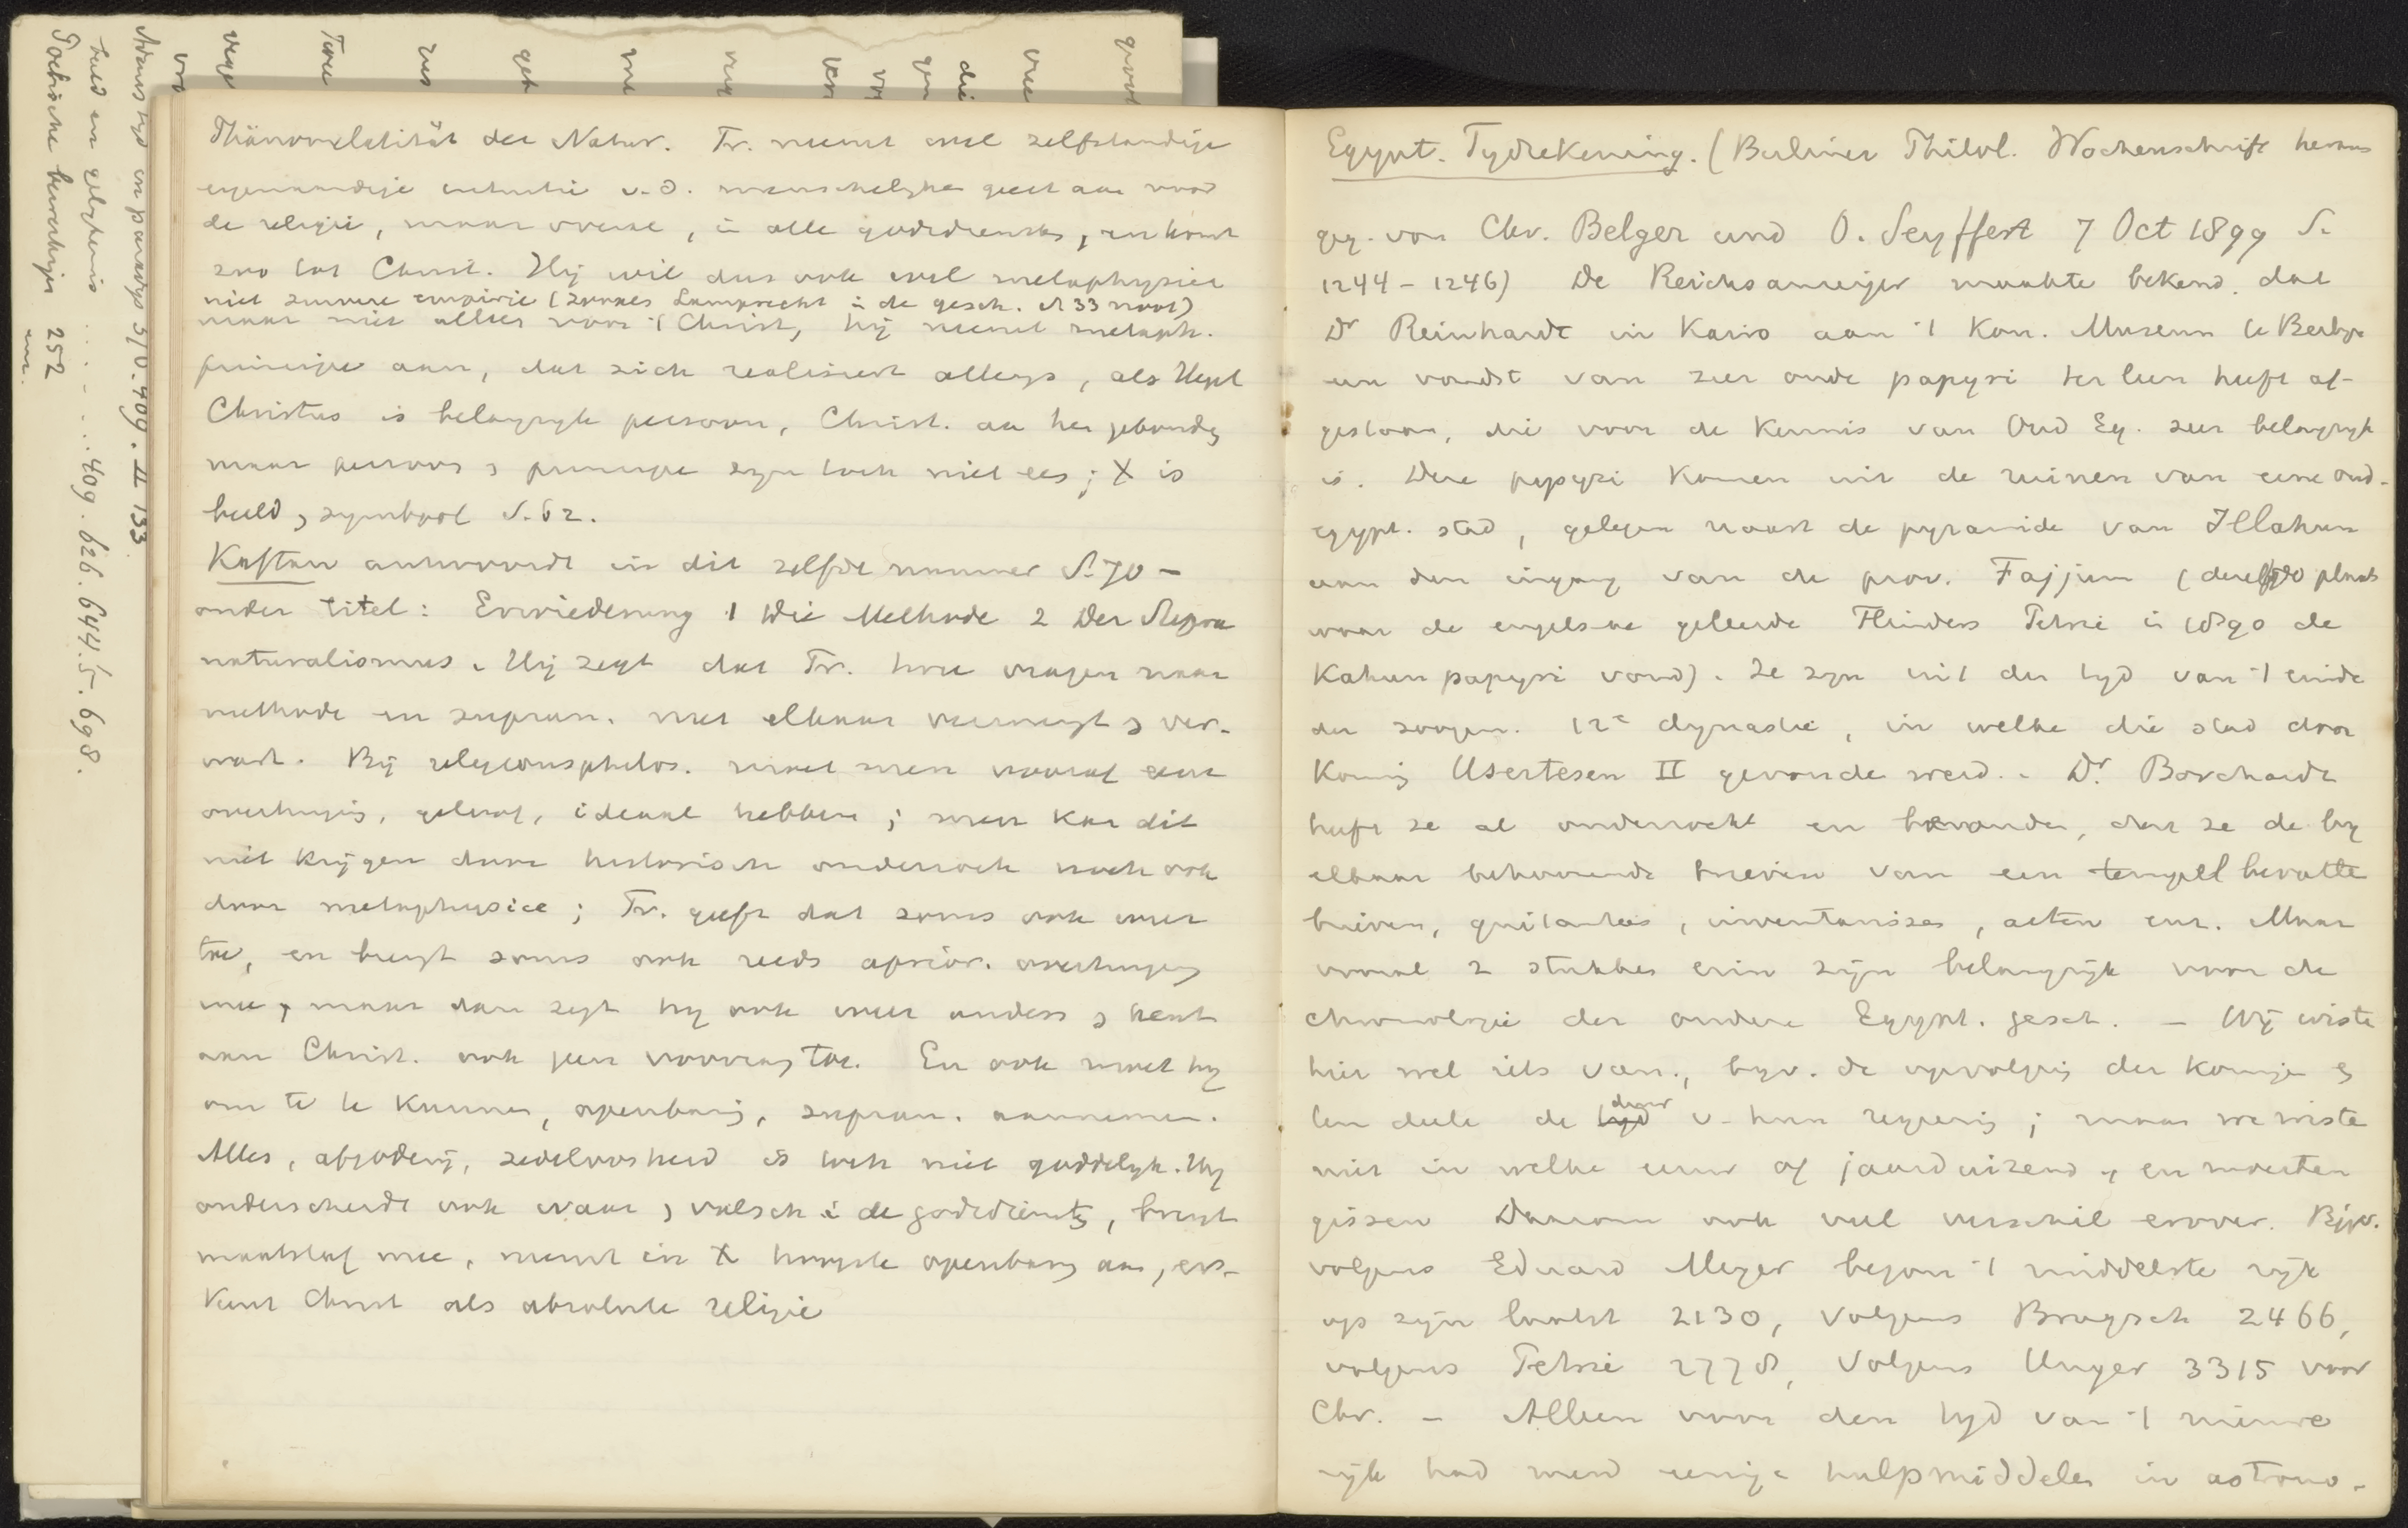 Phänomenalität der Natur. Tr. neemt wel zelfstandige
eigenaardige intuitie v.d. menschelyke geest aan voor
de religie, maar overal, in alle godsdiensten, en komt
zoo tot Christ. Hij wil dus ook wel metaphysica
niet zuivere empirie (zooals Lamprecht in de gesch. S 33 noot)
maar niet alleen voor 't Christ, hij neemt metaph.
principe aan, dat zich realiseert allengs, als Hegel
Christus is belangryk persoon, Christ. aan hem gebonden
maar persoon & principe zyn toch niet een; X is
beeld, symbool S. 62.
Kaftan antwoordt in dit zelfde nummer S. 70 -
onder titel: Erwiederung 1 Die Methode 2 Der Supra
naturalismus. Hij zegt dat Tr. twee vragen naar
methode en supran. met elkaar vermengt & ver-
wart. Bij religionsphilos. moet men vooraf eene
overtuiging, geloof, ideaal hebben; men kan dit
niet krijgen door historisch onderzoek noch ook
door metaphysica; Tr. geeft dat soms ook weer
toe, en brengt soms ook reeds aprior. overtuiging
mee, maar dan zegt hy ook weer anders & kent
aan Christ. ook geen voorrang toe. En ook moet hy
om te te kunnen, openbaring, supran. aannemen.
Alles, afgoderij, zedeloosheid is toch niet goddelyk. Hy
onderscheidt ook waar & valsch in de godsdiensten, brengt
maatstaf mee, neemt in X hoogste openbaring aan, er-
kent Christ als absolute religie
Egypt. Tydrekening. (Berliner Philol. Wochenschrift heraus
geg. von Chr. Belger und O. Seyffert 7 Oct 1899 S.
1244 - 1246) De Reichsanzeiger maakte bekend, dat
Dr Reinhardt in Kairo aan 't Kon. Museum te Berlyn
een vondst van zeer oude papyri ter leen heeft af-
gestaan, die voor de kennis van Oud Eg. zeer belangryk
is. Deze papyri komen uit de ruinen van eene oud-
egypt. stad, gelegen naast de pyramide van Illahun
aan den ingang van de prov. Fajjum (dezelfde plaats
waar de engelsche geleerde Flinders Petrie in 1890 de
Kahun papyri vond). Ze zyn uit den tyd van 't einde
der zoogen. 12e dynastie, in welke die stad door
Koning Usertesen II gevonde werd. - Dr Borchardt
heeft ze al onderzocht en bevonden, dat ze de by
elkaar behoorende brieven van een tempel bevatte
brieven, quitanties, inventarissen, acten enz. Maar
vooral 2 stukken erin zijn belangrijk voor de
chronologie der oudere Egypt. gesch. - Wij wiste
hier wel iets van, byv. de opvolging der Koningen &
ten deele de tyd duur v. hun regeering; maar we wiste
niet in welke eeuw of jaarduizend, en moesten
gissen Daarom ook veel verschil erover. Bijv.
volgens Eduard Meyer begon 't middelste ryk
op zijn laatst 2130, volgens Brugsch 2466,
volgens Petrie 2778, volgens Unger 3315 voor
Chr. - Alleen voor den tyd van 't nieuwe
rijk had men eenige hulpmiddelen in astrono-